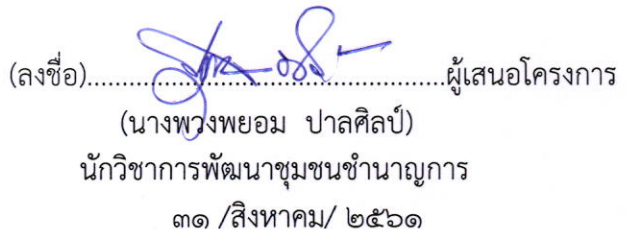 (ลงชื่อ)............................................ผู้เสนอโครงการ
(นางพวงพยอม ปาลศิลป์)
นักวิชาการพัฒนาชุมชนชำนาญการ
๓๑ /สิงหาคม/ ๒๕๖๑